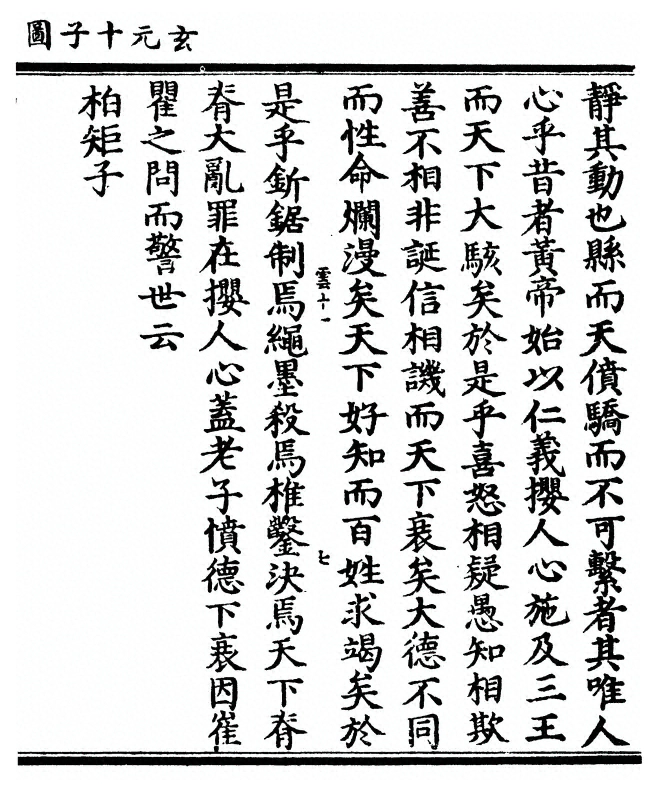 玄元十子圖
靜其動也縣而天僨驕而不可繫者其唯人
心乎昔者黃帝始以仁義攖人心施及三王
而天下大駭矣於是乎喜怒相疑愚知相欺
善不相非誕信相譏而天下衰矣大德不同
而性命爛漫矣天下好知而百姓求竭矣於
雲十一
七
是乎釿鋸制焉繩墨殺焉椎鑿決焉天下脊
脊大亂罪在攖人心蓋老子憤德下衰因崔
瞿之問而警世云
柏矩子